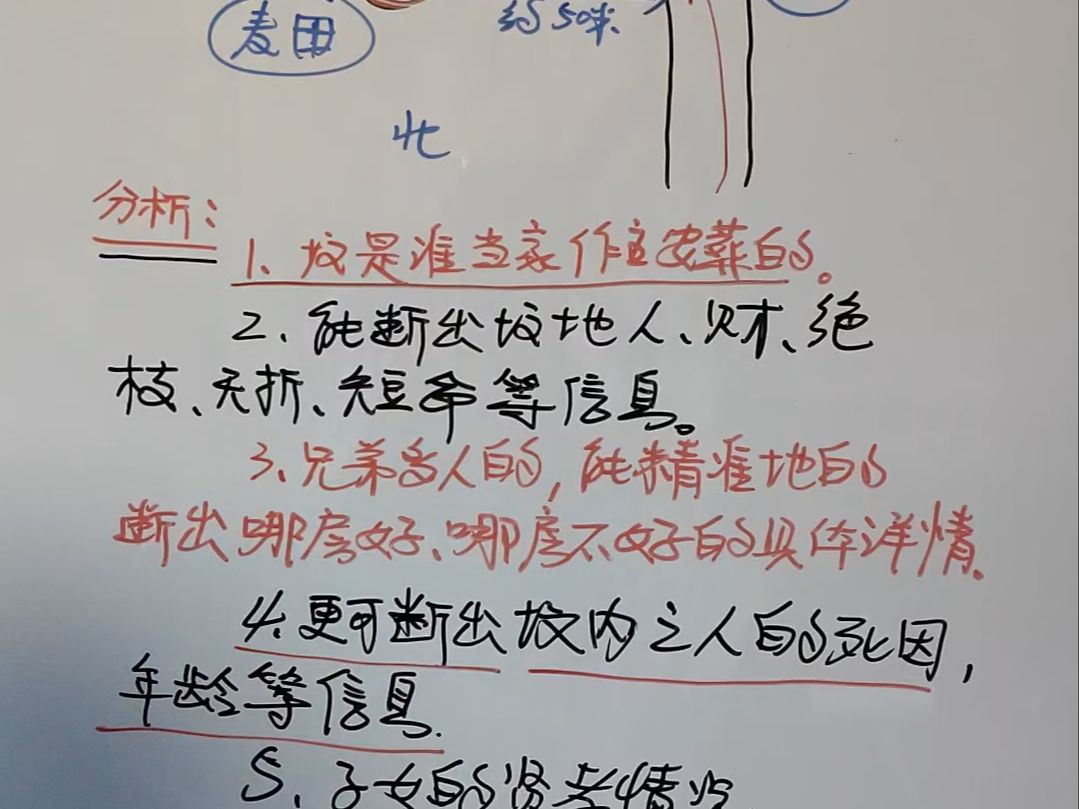 麦田
约50米
北
分析：
1、坟是谁当家作主安葬的。
2、能断出坟地人、财、绝
枝、夭折、短命等信息。
3、兄弟多人的，能精准地的
断出哪房好、哪房不好的具体详情。
4、更可断出坟内之人的死因，
年龄等信息.
5、子女的贤孝情况